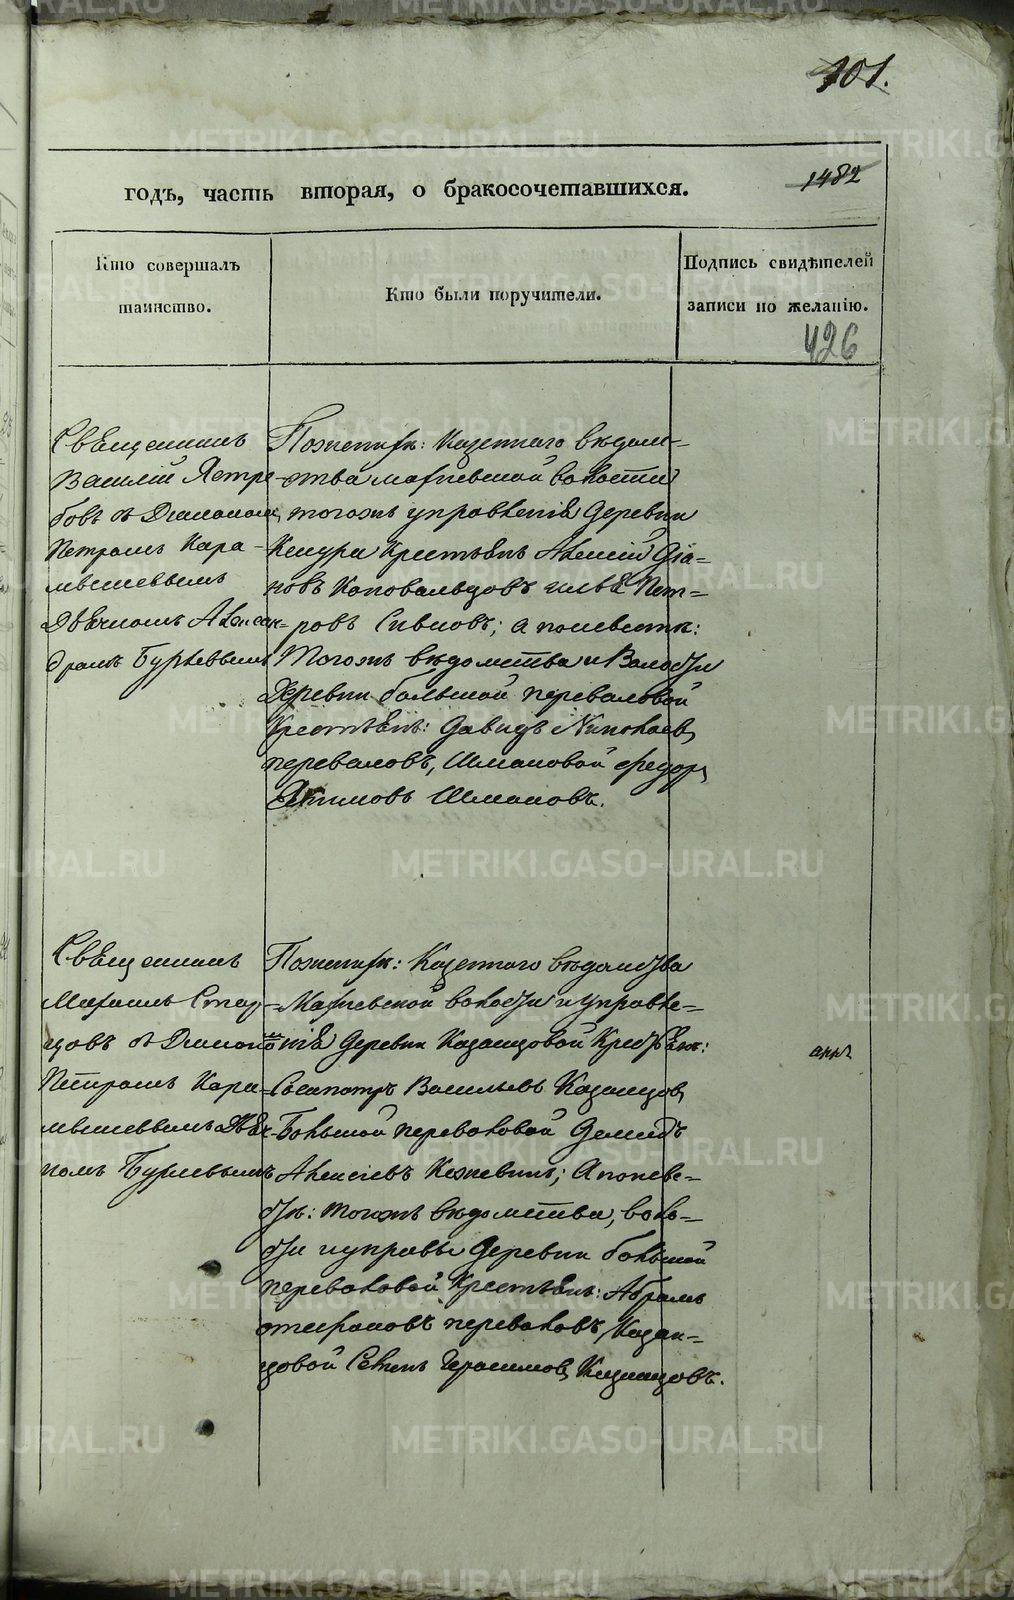 101.
1482
годъ, часть вторая, о бракосочетавшихся.
Кто совершалъ
таинство.
Кто были поручители.
Подпись свидѣтелей
записи по желанію.
426
Священникъ
Василій Ястре-
бовъ съ Диакономъ
Петромъ Кара-
мышевымъ
Дьячкомъ Алексан-
дромъ
По женихѣ: Казеннаго вѣдом-
ства волости
тогожъ управленія Деревни
Крестьянъ Алексій
новъ Коновальцовъ Пет-
ровъ а поневѣстѣ:
Тогожъ вѣдомства и Волости
Деревни большой переваловой
Крестьянъ: Давидъ Николаевъ
переваловъ, Шмаковой Федоръ
Якимовъ Шмаковъ.
Священникъ
съ Диакономъ
Петромъ Кара-
мышевымъ Дьяч-
комъ
По женихѣ: Казеннаго вѣдомства
волости и управле-
нія Деревни Казанцовой Крестьянъ:
Сосипатръ Васильевъ Казанцовъ
Большой переваловой Демидъ
Алексіевъ Кожевинъ; А поневѣ-
стѣ: тогожъ вѣдомства, воло-
сти и управы Деревни большой
переваловой Крестьянъ: Абрамъ
переваловъ, Казан-
цовой Семенъ Герасимовъ Казанцовъ.
METRIKI.GASO-URAL.RU